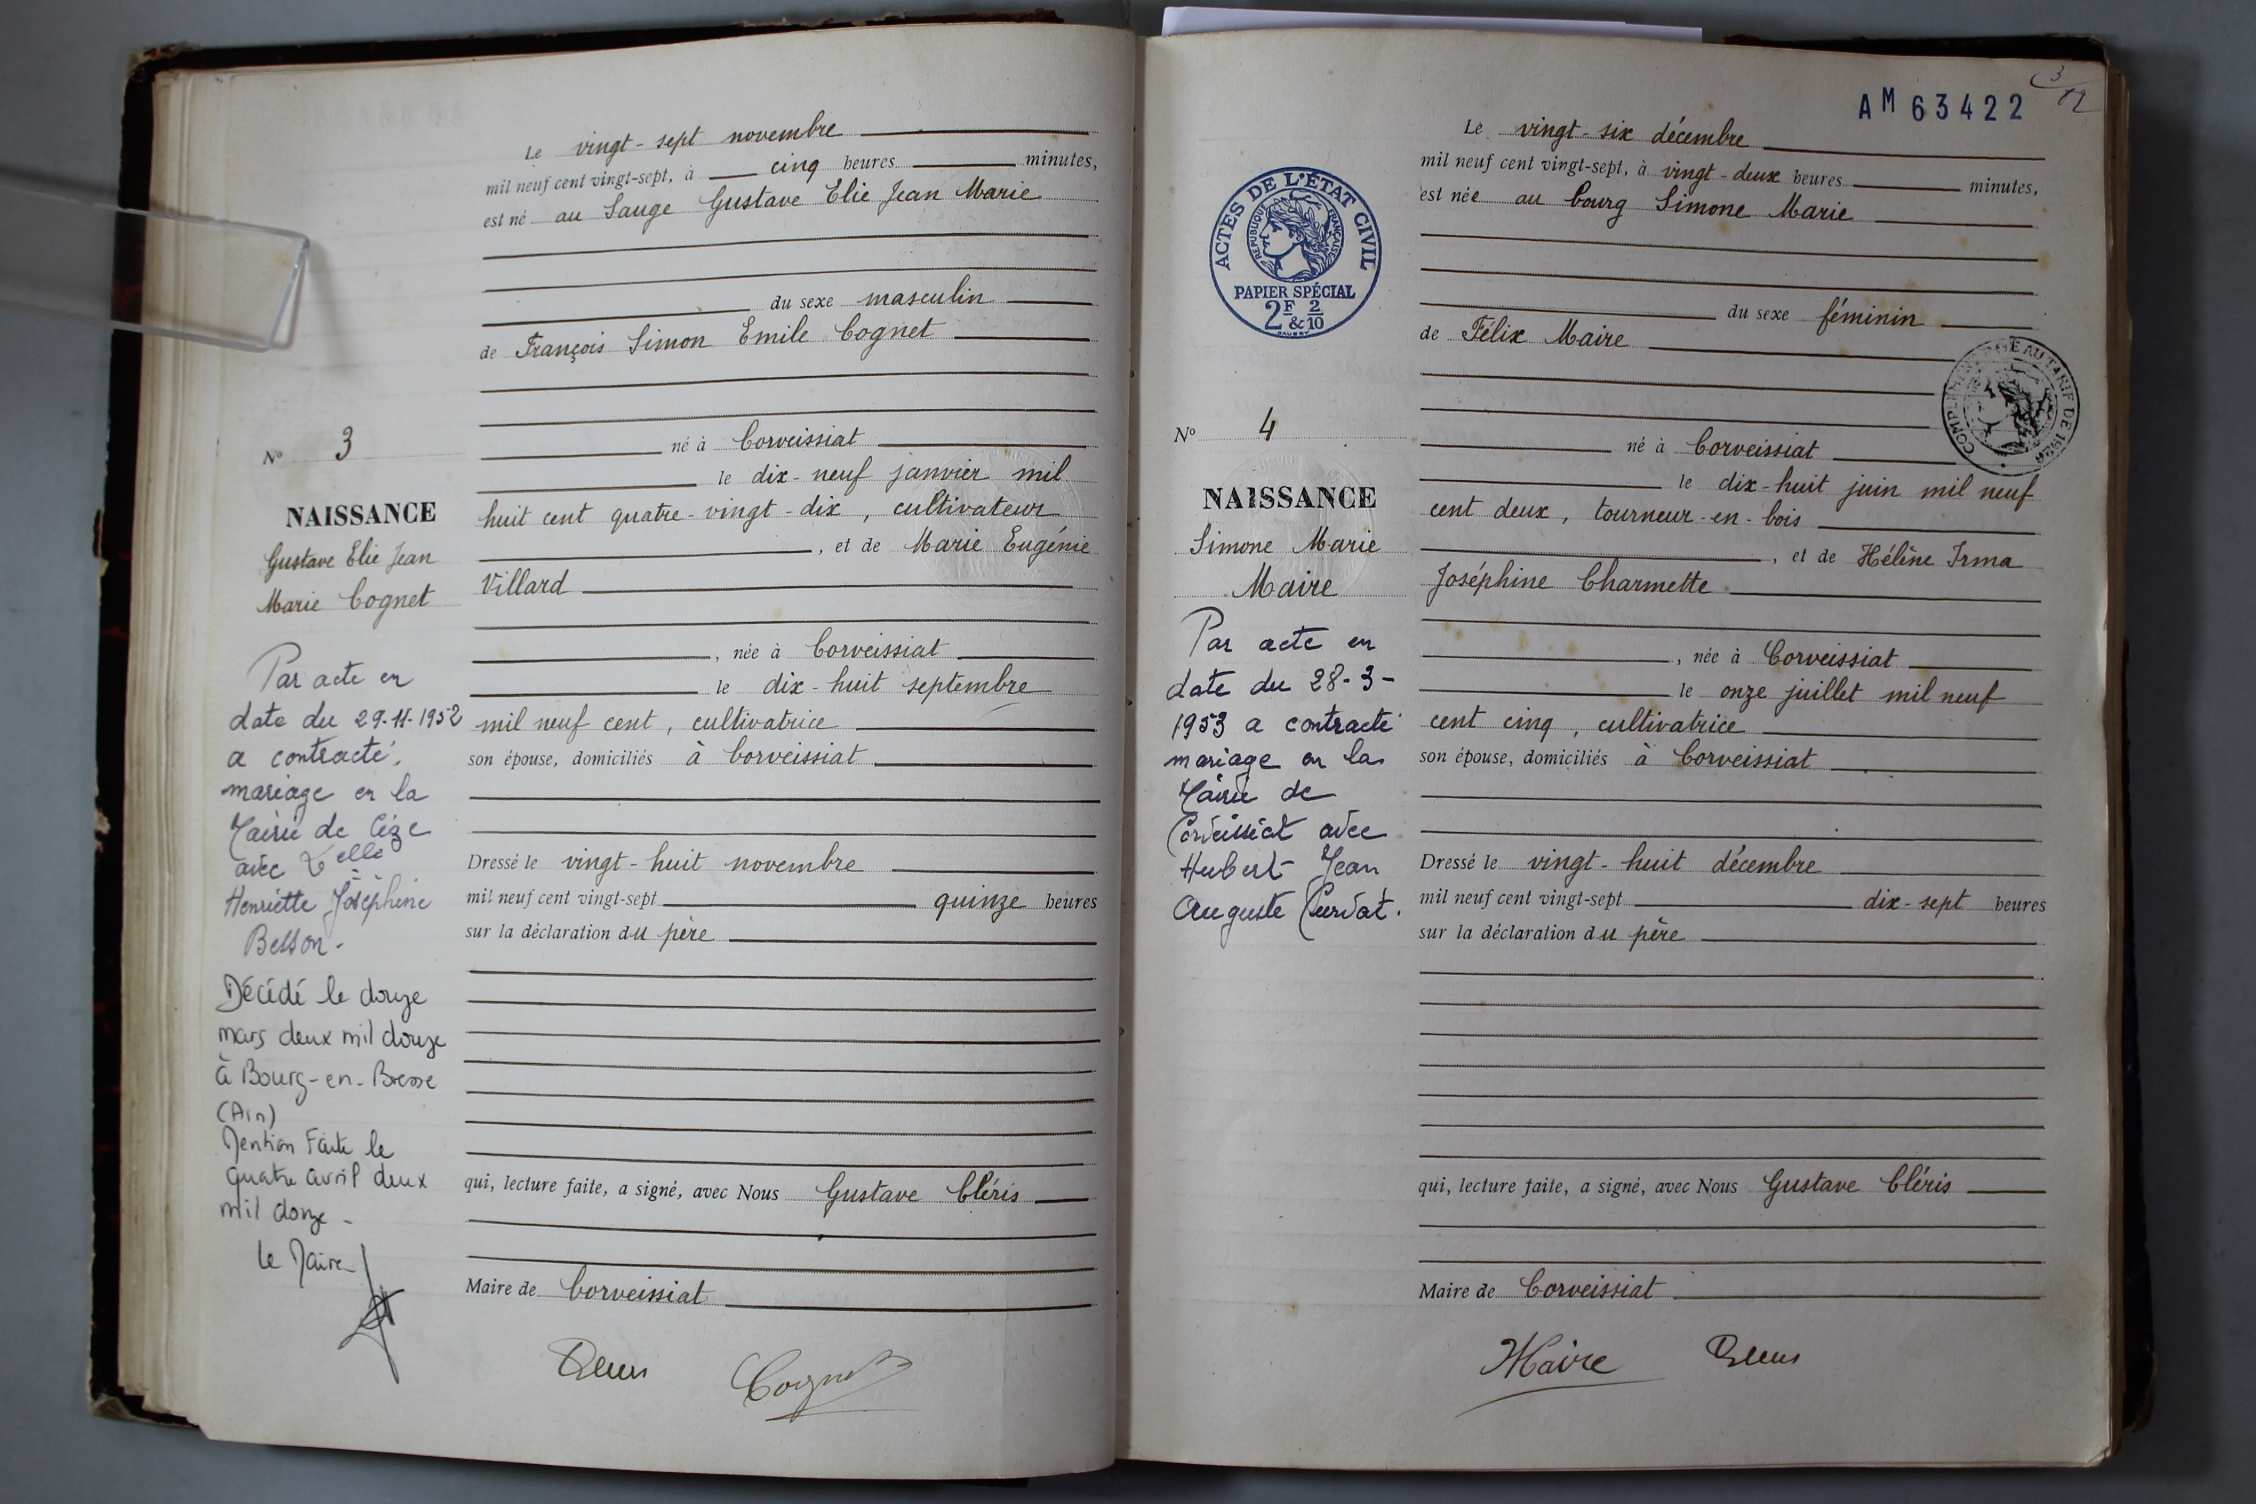 Le vingt-sept novembre
mil neuf cent vingt-sept, à cinq heures minutes,
est né au Sauge Gustave Elie Jean Marie
du sexe masculin
de François Simon Emile Cognet
né à Corveissiat
le dix-neuf janvier mil
huit cent quatre-vingt-dix, cultivateur
, et de Marie Eugénie
Villard
, née à Corveissiat
le dix-huit septembre
mil neuf cent, cultivatrice
son épouse, domiciliés à Corveissiat
Dressé le vingt-huit novembre
mil neuf cent vingt-sept quinze heures
sur la déclaration du père
qui, lecture faite, a signé, avec Nous Gustave Cléris
Maire de Corveissiat
Cognet
N° 3
NAISSANCE
Gustave Elie Jean
Marie Cognet
Par acte en
date du 29-11-1952
a contracté
mariage en la
Mairie de Cize
avec Delle
Henriette Joséphine
Besson-
Décédé le douze
mars deux mil douze
à Bourg-en-Bresse
(Ain)
Mention Faite le
quatre avril deux
mil douze-
Le Maire
AM 63422
3
12
Le vingt-six décembre
mil neuf cent vingt-sept, à vingt-deux heures minutes,
est née au bourg Simone Marie
du sexe féminin
de Félix Maire
né à Corveissiat
le dix-huit juin mil neuf
cent deux, tourneur-en-bois
, et de Hélène Irma
Joséphine Charmette
, née à Corveissiat
le onze juillet mil neuf
cent cinq, cultivatrice
son épouse, domiciliés à Corveissiat
Dressé le vingt-huit décembre
mil neuf cent vingt-sept dix-sept heures
sur la déclaration du père
qui, lecture faite, a signé, avec Nous Gustave Cléris
Maire de Corveissiat
Maire
ACTES DE L'ÉTAT CIVIL
RÉPUBLIQUE FRANÇAISE
PAPIER SPÉCIAL
2F & 2/10
AU TARIF DE 1926
N° 4
NAISSANCE
Simone Marie
Maire
Par acte en
date du 28-3-
1953 a contracté
mariage en la
Mairie de
Corveissiat avec
Hubert Jean
Auguste Curvat.